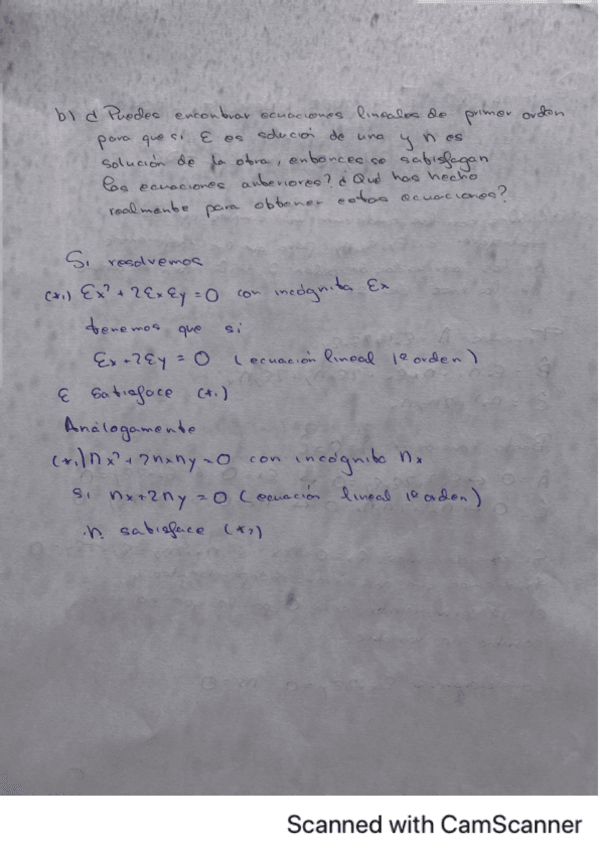 b) ¿ Puedes encontrar ecuaciones lineales de primer orden
para que si ε es solución de una y n es
solución de la otra, entonces se satisfagan
las ecuaciones anteriores? ¿Qué has hecho
realmente para obtener estas ecuaciones?
Si resolvemos
(*1) εx² + 2εx εy = 0 con incógnita εx
tenemos que si
εx + 2εy = 0 (ecuación lineal 1º orden)
ε satisface (*1)
Análogamente
(*2) nx² + 2nxny = 0 con incógnita nx
si nx + 2ny = 0 (ecuación lineal 1º orden)
n satisface (*2)
Scanned with CamScanner